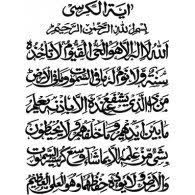 اية الكرسى
بسم الله الرحمن الرحيم
الله لا اله الا هو الحي القيوم لا تأخذه
سنة ولا نوم له ما في السموات وما في الارض
من ذا الذي يشفع عنده الا باذنه يعلم
ما بين ايديهم وما خلفهم ولا يحيطون
بشئ من علمه الا بما شاء وسع كرسيه السموات
والارض ولا يؤده حفظهما وهو العلي العظيم